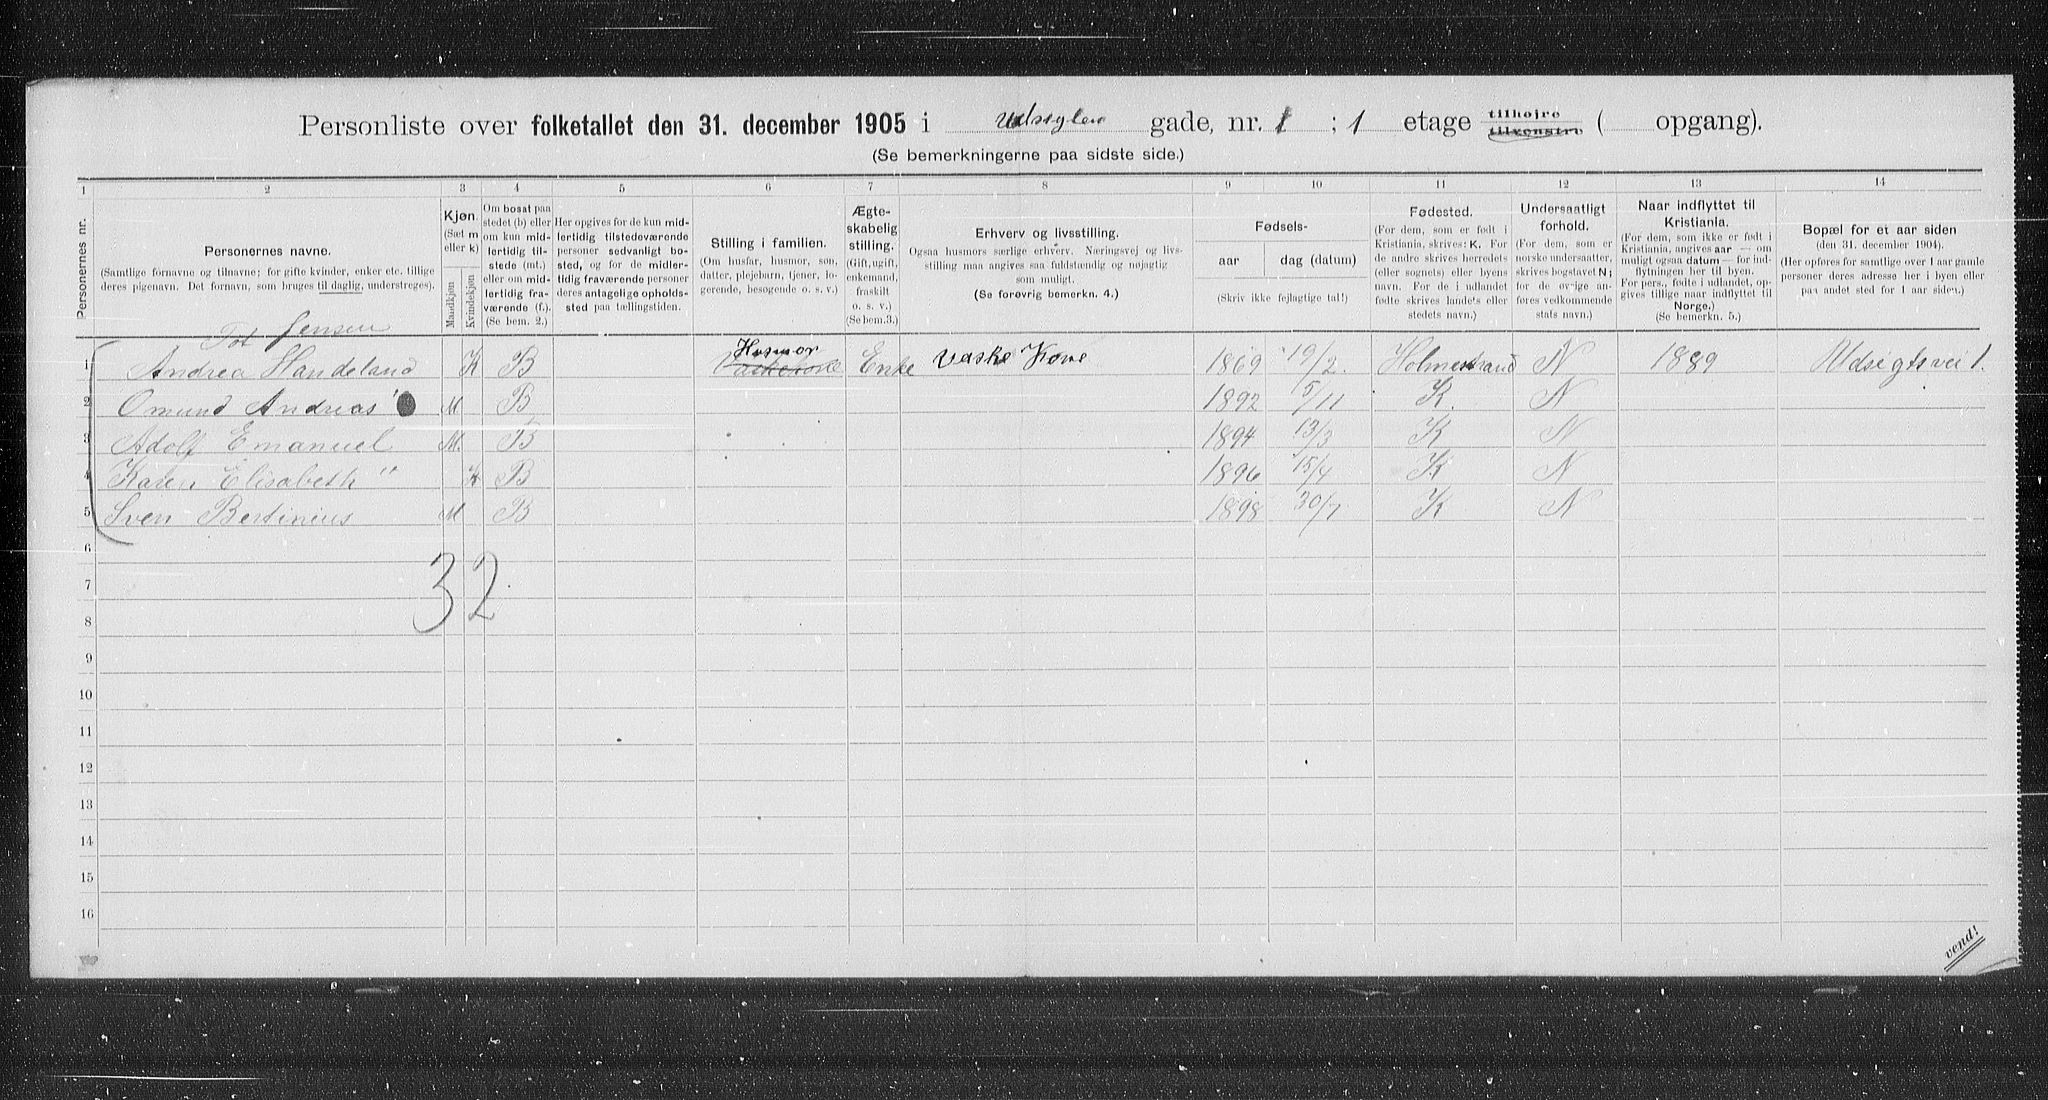 Personliste over folketallet den 31. december 1905 i Udsigten gade, nr. 1 ; 1 etage tilhøjre tilvenstre ( opgang).
(Se bemerkningerne paa sidste side.)
1 2 3 4 5 6 7 8 9 10 11 12 13 14
Personernes nr.
Personernes navne.
(Samtlige fornavne og tilnavne; for gifte kvinder, enker etc. tillige
deres pigenavn. Det fornavn, som bruges til daglig, understreges).
Kjøn.
(Sæt m
eller k)
Mandkjøn
Kvindekjøn
Om bosat paa
stedet (b) eller
om kun mid-
lertidig til-
stede (mt.)
eller om mid-
lertidig fra-
værende (f.).
(Se bem. 2.)
Her opgives for de kun mid-
lertidig tilstedeværende
personer sedvanligt bo-
sted, og for de midler-
tidig fraværende personer
deres antagelige opholds-
sted paa tællingstiden.
Stilling i familien.
(Om husfar, husmor, søn,
datter, plejebarn, tjener, lo-
gerende, besøgende o. s. v.)
Ægte-
skabelig
stilling.
(Gift, ugift,
enkemand,
fraskilt
o. s. v.)
(Se bem.3.)
Erhverv og livsstilling.
Ogsaa husmors særlige erhverv. Næringsvej og livs-
stilling maa angives saa fuldstændig og nøjagtig
som muligt.
(Se forøvrig bemerkn. 4.)
Fødsels-
aar
dag (datum)
(Skriv ikke fejlagtige tal!)
Fødested.
(For dem, som er født i
Kristiania, skrives: K. For
de andre skrives herredets
(eller sognets) eller byens
navn. For de i udlandet
fødte skrives landets eller
stedets navn.)
Undersaatligt
forhold.
(For norske
undersaatter,
skrives bogstavet N;
for de øvrige an-
føres vedkommende
stats navn.)
Naar indflyttet til
Kristiania.
(For dem, som ikke er født i
Kristiania, angives aar — om
muligt ogsaa datum — for ind-
flytningen her til byen.
For pers., fødte i udlandet, op-
gives tillige naar indflyttet til
Norge.)
(Se bemerkn. 5.)
Bopæl for et aar siden
(den 31. december 1904).
(Her opføres for samtlige over 1 aar gamle
personer deres adresse her i byen eller
paa andet sted for 1 aar siden.)
Jensen
Husmor
1 Andrea Handeland K B Enke Vaske Kone 1869 19/2. Holmestrand N 1889 Udsigtsvei 1.
2 Omund Andreas " M B 1892 5/11 K. N
3 Adolf Emanuel M. B 1894 13/3 K N
4 Karen Elisabeth " K B 1896 15/4 K N
5 Sven Bertinius M B 1898 30/7 K N
6
32
7
8
9
10
11
12
13
14
15
16
vend!